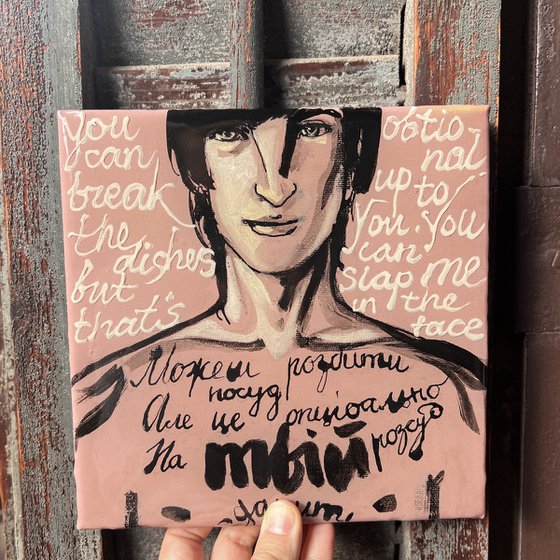 you
can
break
the
dishes
but
that's
obtio
nal
up to
You. You
can
slap me
in the
face
Можеш розбити
посуд
Але це опціоально
На твій розсуд